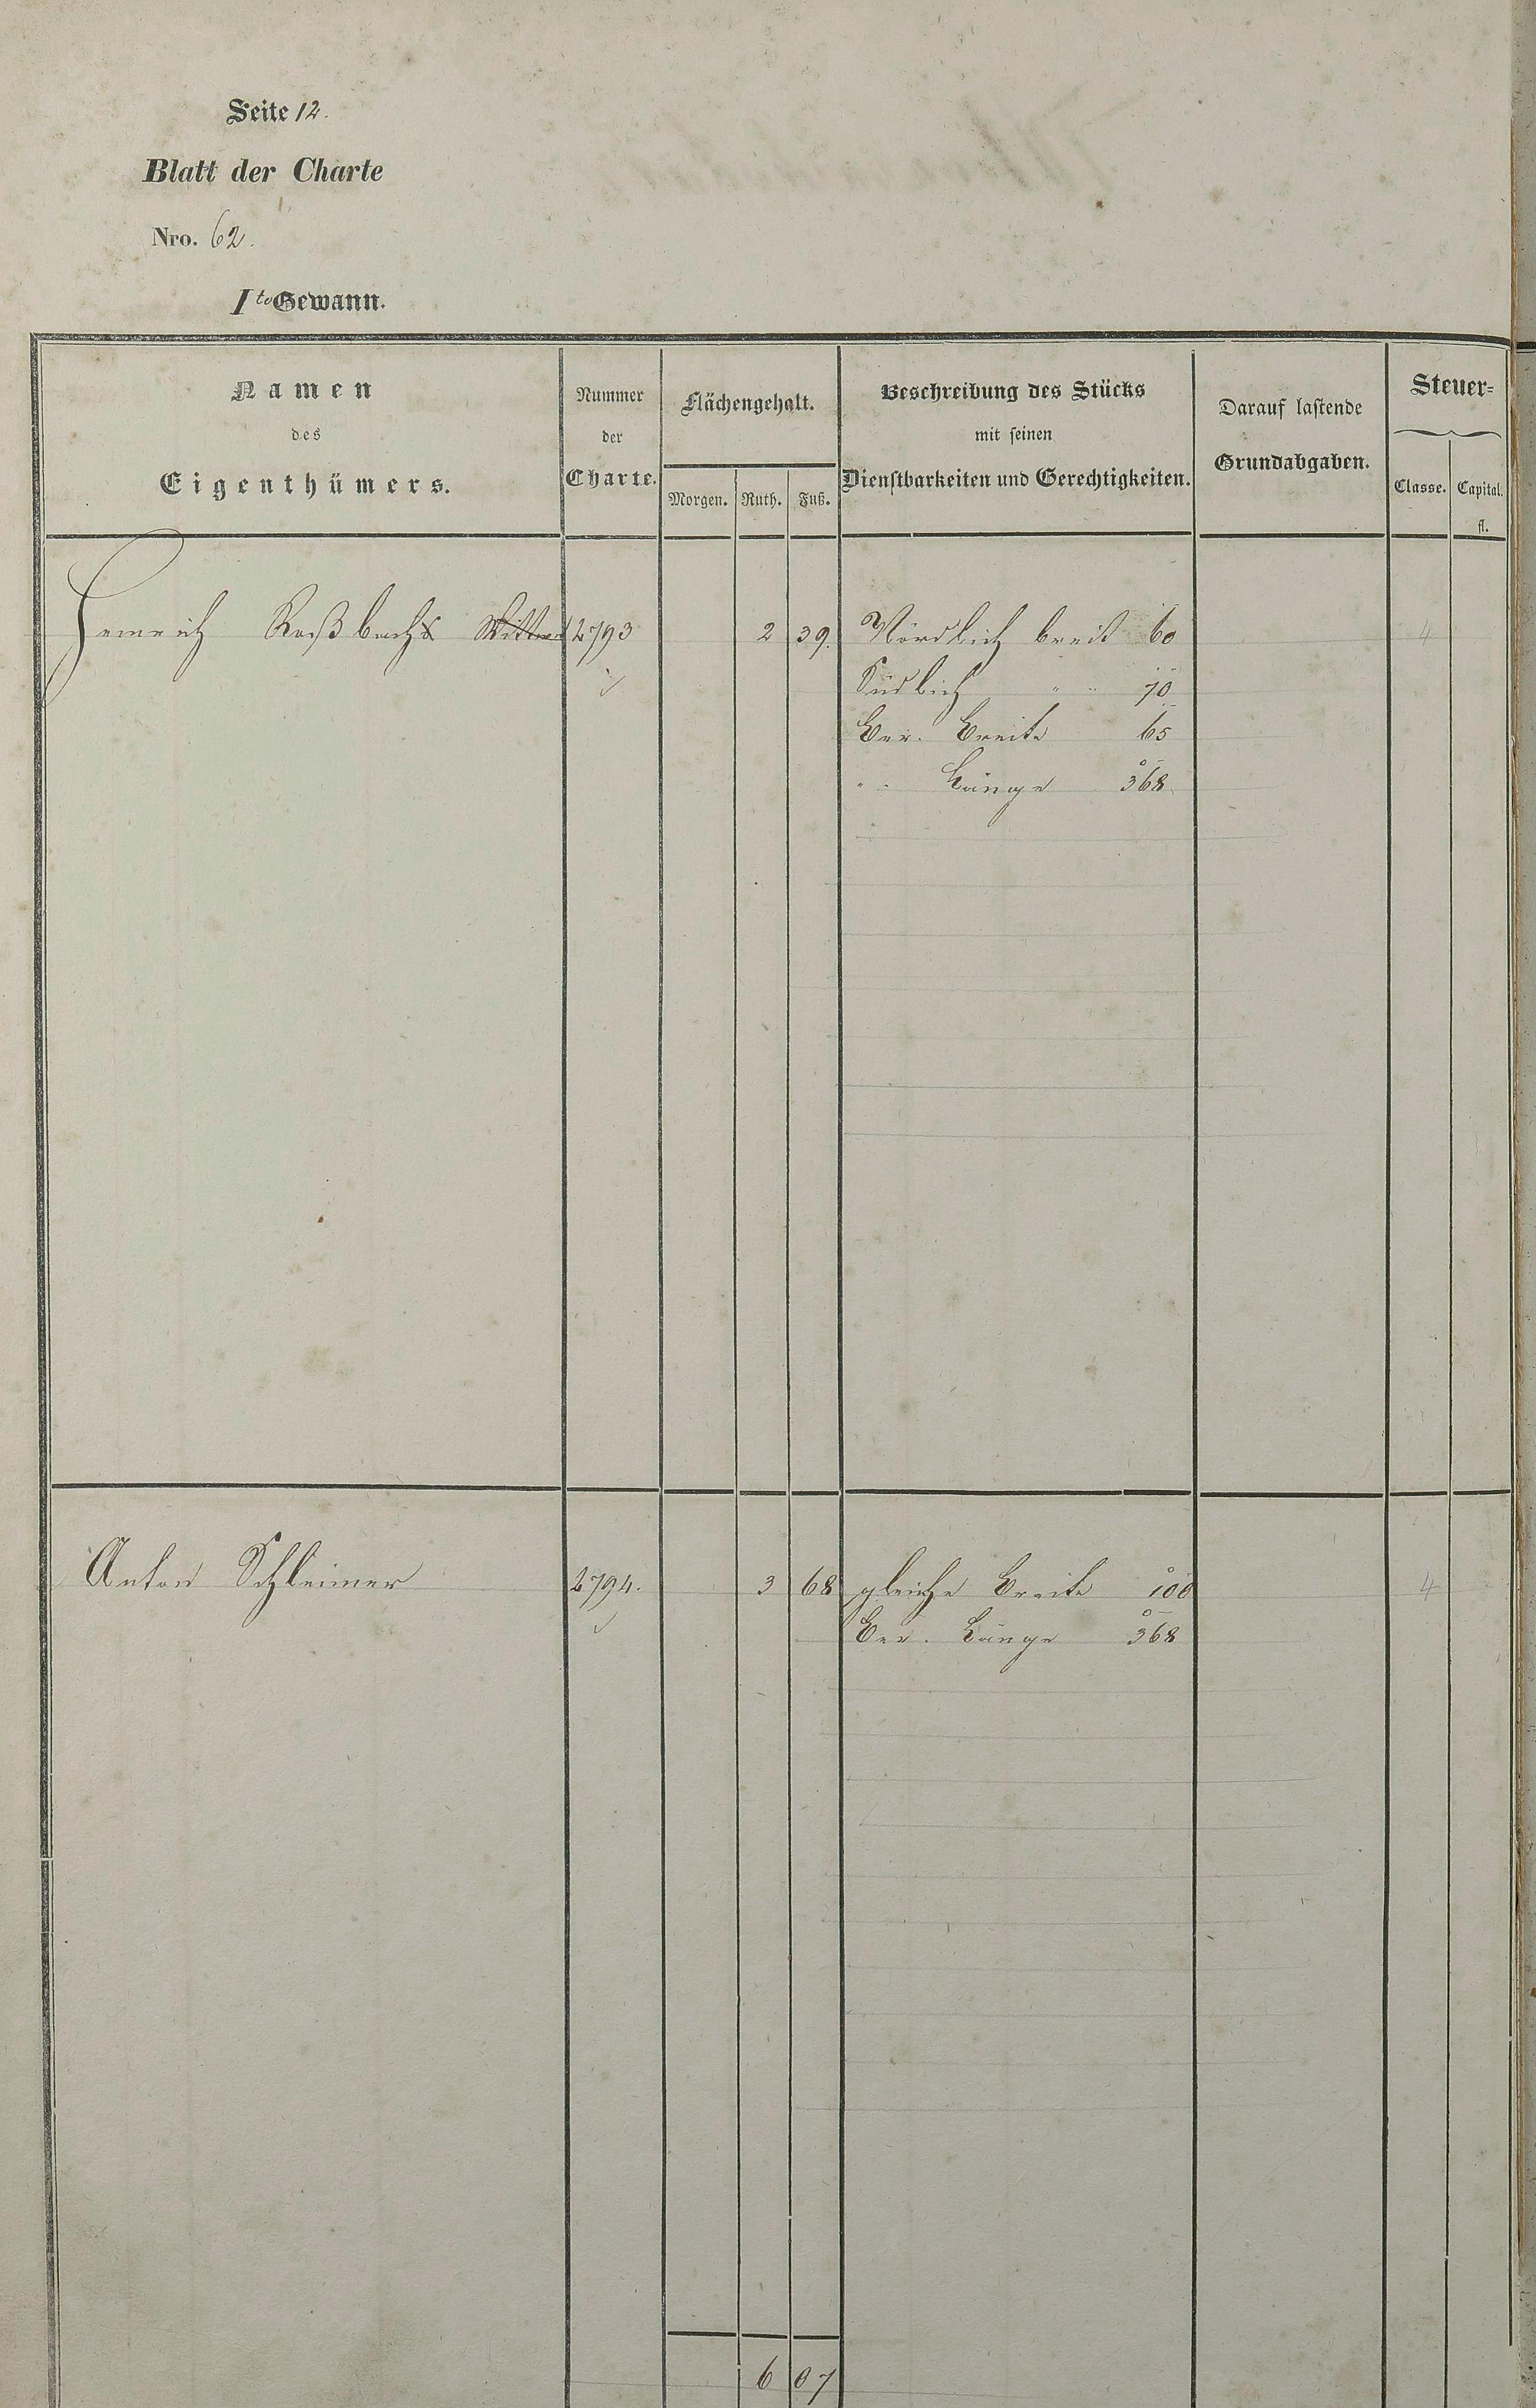 Seite 12.
Blatt der Charte
Nro. 62.
I te Gewann.
Namen des Eigenthümers.
Nummer der Charte.
Flächengehalt.
Morgen. Ruth. Fuß.
Beschreibung des Stücks mit seinen Dienstbarkeiten und Gerechtigkeiten.
Darauf lastende Grundabgaben.
Steuer=
Classe. Capital. fl.
Roßbachs Wittwe 2793 2 39. Nördlich breit 60 4
Südlich " " 70
Ber. Breite 65
" " Länge 368
Anton Schleimer 2794. 3 68 gleiche Breite 100 4
Ber. Länge 368
6 07